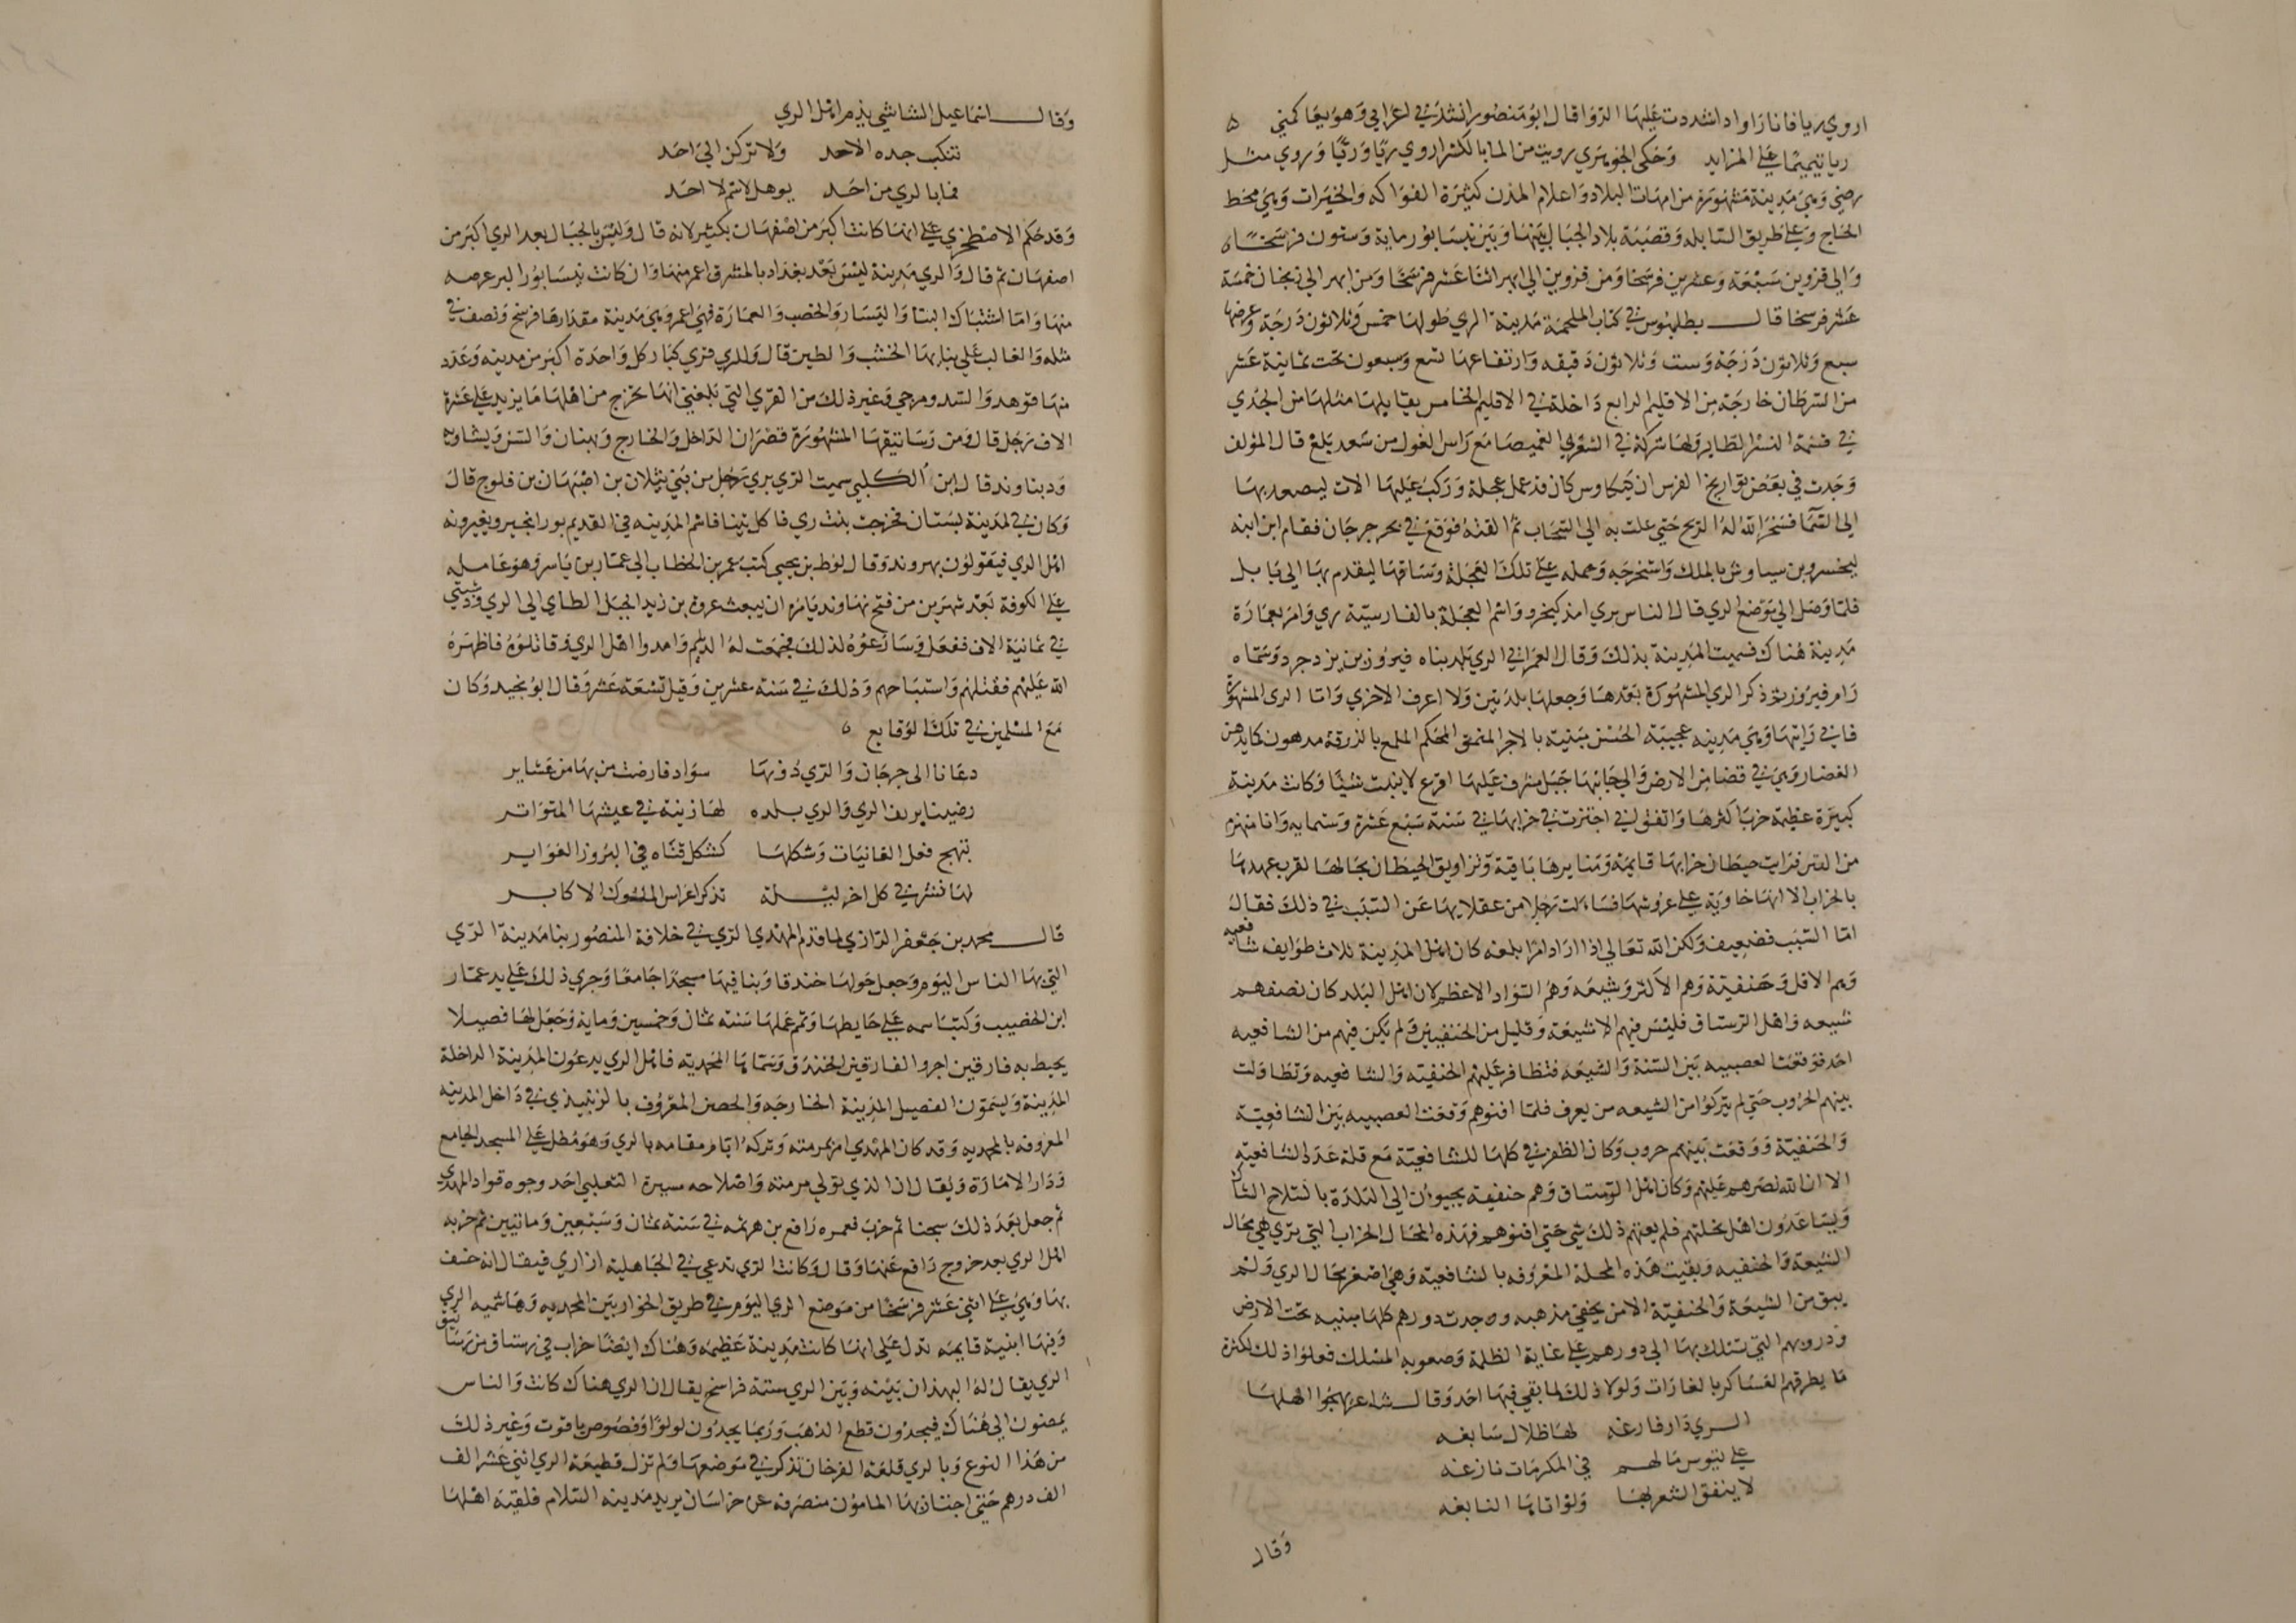 اروي ريا فانا راو اذا شددت عليها الروا قال ابو منصور انشدني اعرابي وهو يعاكمني
ريا تميميا على المزايد وحكى الجوهري رويت من الما بالكسر اروي ريا وريا وروي مثل
رضي وهي مدينة مشهورة من امهات البلاد واعلام المدن كثيرة الفواكه والخيرات وهي محط
الحاج على طريق السابله وقصبة بلاد الجبال بينها وبين نيسابور ماية وستون فرسخا
والي قزوين سبعة وعشرين فرسخا ومن قزوين الي ابهر اثنا عشر فرسخا ومن ابهر الي زنجان خمسة
عشر فرسخا قال بطلميوس في كتاب الملحمة مدينة الري طولها خمس وثلاثون درجة وعرضها
سبع وثلاثون درجة وست وثلاثون دقيقه وارتفاعها سبع وسبعون تحت ثمانية عشر
من السرطان خارجة من الاقليم الرابع داخلة في الاقليم الخامس يقابلها مثلها من الجدي
في قسمة النسر الطاير ولها شركة في الشعري الغميصا مع راس الغول من سعد بلع قال المؤلف
وجدت في بعض تواريخ الفرس ان كيكاوس كان قد عمل عجلة وركب عليها الات ليصعد بها
الي السما فسخر الله له الريح حتي علت به الي السحاب ثم القته فوقع في بحر جرجان فقام ابن ابنه
ليخسرو بن سياوش بالملك واستخرجه وحمله على تلك العجلة وساقها ليقدم بها الي بابل
فلما وصل الي موضع الري قال الناس بري امذ كيخرو واسم العجلة بالفارسية ري وامر بعمارة
مدينة هناك فسميت المدينة بذلك وقال العمراني الري بلد بناه فيروز بن يزدجرد وسماه
رام فيروز ثم ذكر الري المشهورة بعدها وجعلها بلدتين ولا اعرف الاخري واما الري المشهورة
فاني رايتها وهي مدينه عجيبة الحسن مبنيه بالاجر المنمق المحكم الملمع بالزرقة مدهون كايدهن
الغضار وهي في فضا من الارض والي جانبها جبل مشرف عليها اقرع لا ينبت شيئا وكانت مدينة
كبيرة عظيمة خرب اكثرها واتفق لي اني اجتزت في خرابها في سنة سبع عشرة وستمايه وانا منهزم
من التتر فرايت حيطان خرابها قايمة ومنابرها باقية وتزاويق الحيطان بحالها لقرب عهدها
بالخراب الا انها خاوية على عروشها فسالت رجلا من عقلايها عن السبب في ذلك فقال
اما السبب فضعيف ولكن الله تعالي اذا اراد امرا بلغه كان اهل المدينة ثلاث طوايف شافعيه
وهم الاقل وحنفية وهم الاكثر وشيعه وهم السواد الاعظم لان اهل البلد كان نصفهم
شيعه واهل الرستاق فليس فيهم الا شيعة وقليل من الحنفيين ولم يكن فيهم من الشافعيه
احد فوقعت العصبيه بين السنة والشيعه فتظافر عليهم الحنفيه والشافعيه وتطاولت
بينهم الحروب حتي لم يتركوا من الشيعه من يعرف فلما افنوهم وقعت العصبيه بين الشافعية
والحنفية ووقعت بينهم حروب وكان الظفر في كلها للشافعية مع قلة عدد الشافعيه
الا ان الله نصرهم عليهم وكان اهل الرستاق وهم حنفيه يجيون الي البلدة بالسلاح الشاك
ويساعدون اهل نحلتهم فلم يغنهم ذلك شي حتي افنوهم فهذه المحال الخراب التي تري هي محال
الشيعة والحنفيه وبقيت هذه المحلة المعروفه بالشافعية وهي اصغر محال الري ولم
يبق من الشيعة والحنفية الا من يخفي مذهبه ووجدت دورهم كلها مبنيه تحت الارض
ودروبهم التي تسلك بها الي دورهم على غاية الظلمة وصعوبه المسلك فعلوا ذلك لكثرة
ما يطرقهم العساكر بالغارات ولولا ذلك لما بقي فيها احد وقال شاعر يهجوا اهلها
الري دار فارغه لها ظلال سابغه
على تيوس مالهم في المكرمات نازغه
لا ينفق الشعر بها ولو اتاها النابغه
وقال
وقال اسماعيل الشاشي يذم اهل الري
تنكب جده الاحد ولا تركن الي احد
فما بالري من احد يوهل لاسم لا احد
وقد حكم الاصطخري على انها كانت اكبر من اصفهان بكثير لانه قال وليس بالجبال بعد الري اكبر من
اصفهان ثم قال والري مدينة ليس بعد بغداد بالمشرق اعمر منها وان كانت نيسابور اكبر عرصه
منها واما اشتباك البنا واليسار والخصب والعمارة فهي اعمر وهي مدينة مقدارها فرسخ ونصف في
مثله والغالب على بنايها الخشب والطين قال وللري قري كبار كل واحدة اكبر من مدينه وعدد
منها قوهد والسد ومرجي وغير ذلك من القري التي بلغني انها يخرج من اهلها ما يزيد على عشرة
الاف رجل قال ومن رساتيقها المشهورة قصران الداخل والخارج وبهنان والسن وبشاويه
ودنباوند قال ابن الكلبي سميت الري بري رجل من بني شيلان بن اصبهان بن فلوج قال
وكان في المدينة بستان فخرجت بنت ري فاكل تينا فاسم المدينه في القديم بورانجير ويغيرونه
اهل الري فيقولون بهروند وقال لوط بن يحيي كتب عمر بن الخطاب الي عمار بن ياسر وهو عامله
على الكوفة بعد شهرين من فتح نهاوند يامره ان يبعث عروة بن زيد الخيل الطاي الي الري ودستبي
في ثمانية الاف ففعل وسار عروه لذلك فجمعت له الديلم وامدوا اهل الري وقاتلوه فاظهره
الله عليهم فقتلهم واستباحهم وذلك في سنة عشرين وقيل تسعة عشر وقال ابو بجيد وكان
مع المسلمين في تلك الوقايع
دعانا الى جرجان والري دونها سواد فارضت من بها من عشاير
رضينا بريف الري والري بلده لها زينه في عيشها المتواتر
تنهج فعل الغانيات وشكلها كشكل فتاه في البروز الغواير
لها نشز في كل اخر ليلة تذكر اعراس الملوك الاكابر
قال محمد بن جعفر الرازي لما قدم المهدي الري في خلافة المنصور بنا مدينة الري
التي بها الناس اليوم وجعل حولها خندقا وبنا فيها مسجدا جامعا وجري ذلك على يد عمار
ابن الخصيب وكتب اسمه على حايطها وتمم عملها سنة ثمان وخمسين وماية وجعل لها فصيلا
يحيط به فارقين اجر والفارقين الخندق وسماها المحمديه فاهل الري يدعون المدينة الداخلة
المدينة ويسمون الفصيل المدينة الخارجه والحصن المعروف بالزنبيذي في داخل المدينه
المعروفه بالمحمديه وقد كان المهدي امر بمرمته ونزله ايام مقامه بالري وهو مطل على المسجد الجامع
ودار الامارة ويقال ان الذي تولي مرمته واصلاحه ميسرة التغلبي احد وجوه قواد المهدي
ثم جعل بعد ذلك سجنا ثم خرب فعمره رافع بن هرثمه في سنة ثمان وسبعين ومائتين ثم خربه
اهل الري بعد خروج رافع عنها وقال وكانت الري تدعي في الجاهلية ازاري فيقال انه خسف
بها وهي على اثني عشر فرسخا من موضع الري اليوم في طريق الخوار بين المحمديه وهاشميه الري
وفيها ابنية قايمه تدل على انها كانت مدينة عظيمه وهناك ايضا خراب في رستاق من رساتيق
الري يقال له البهذان بينه وبين الري ستة فراسخ يقال ان الري هناك كانت والناس
يمضون الي هناك فيجدون قطع الذهب وربما يجدون لولوا وفصوص ياقوت وغير ذلك
من هذا النوع وبالري قلعة الفرخان تذكر في موضعها ولم تزل قطيعة الري اثني عشر الف
الف درهم حتي اجتاز بها المامون منصرفه عن خراسان يريد مدينه السلام فلقيه اهلها